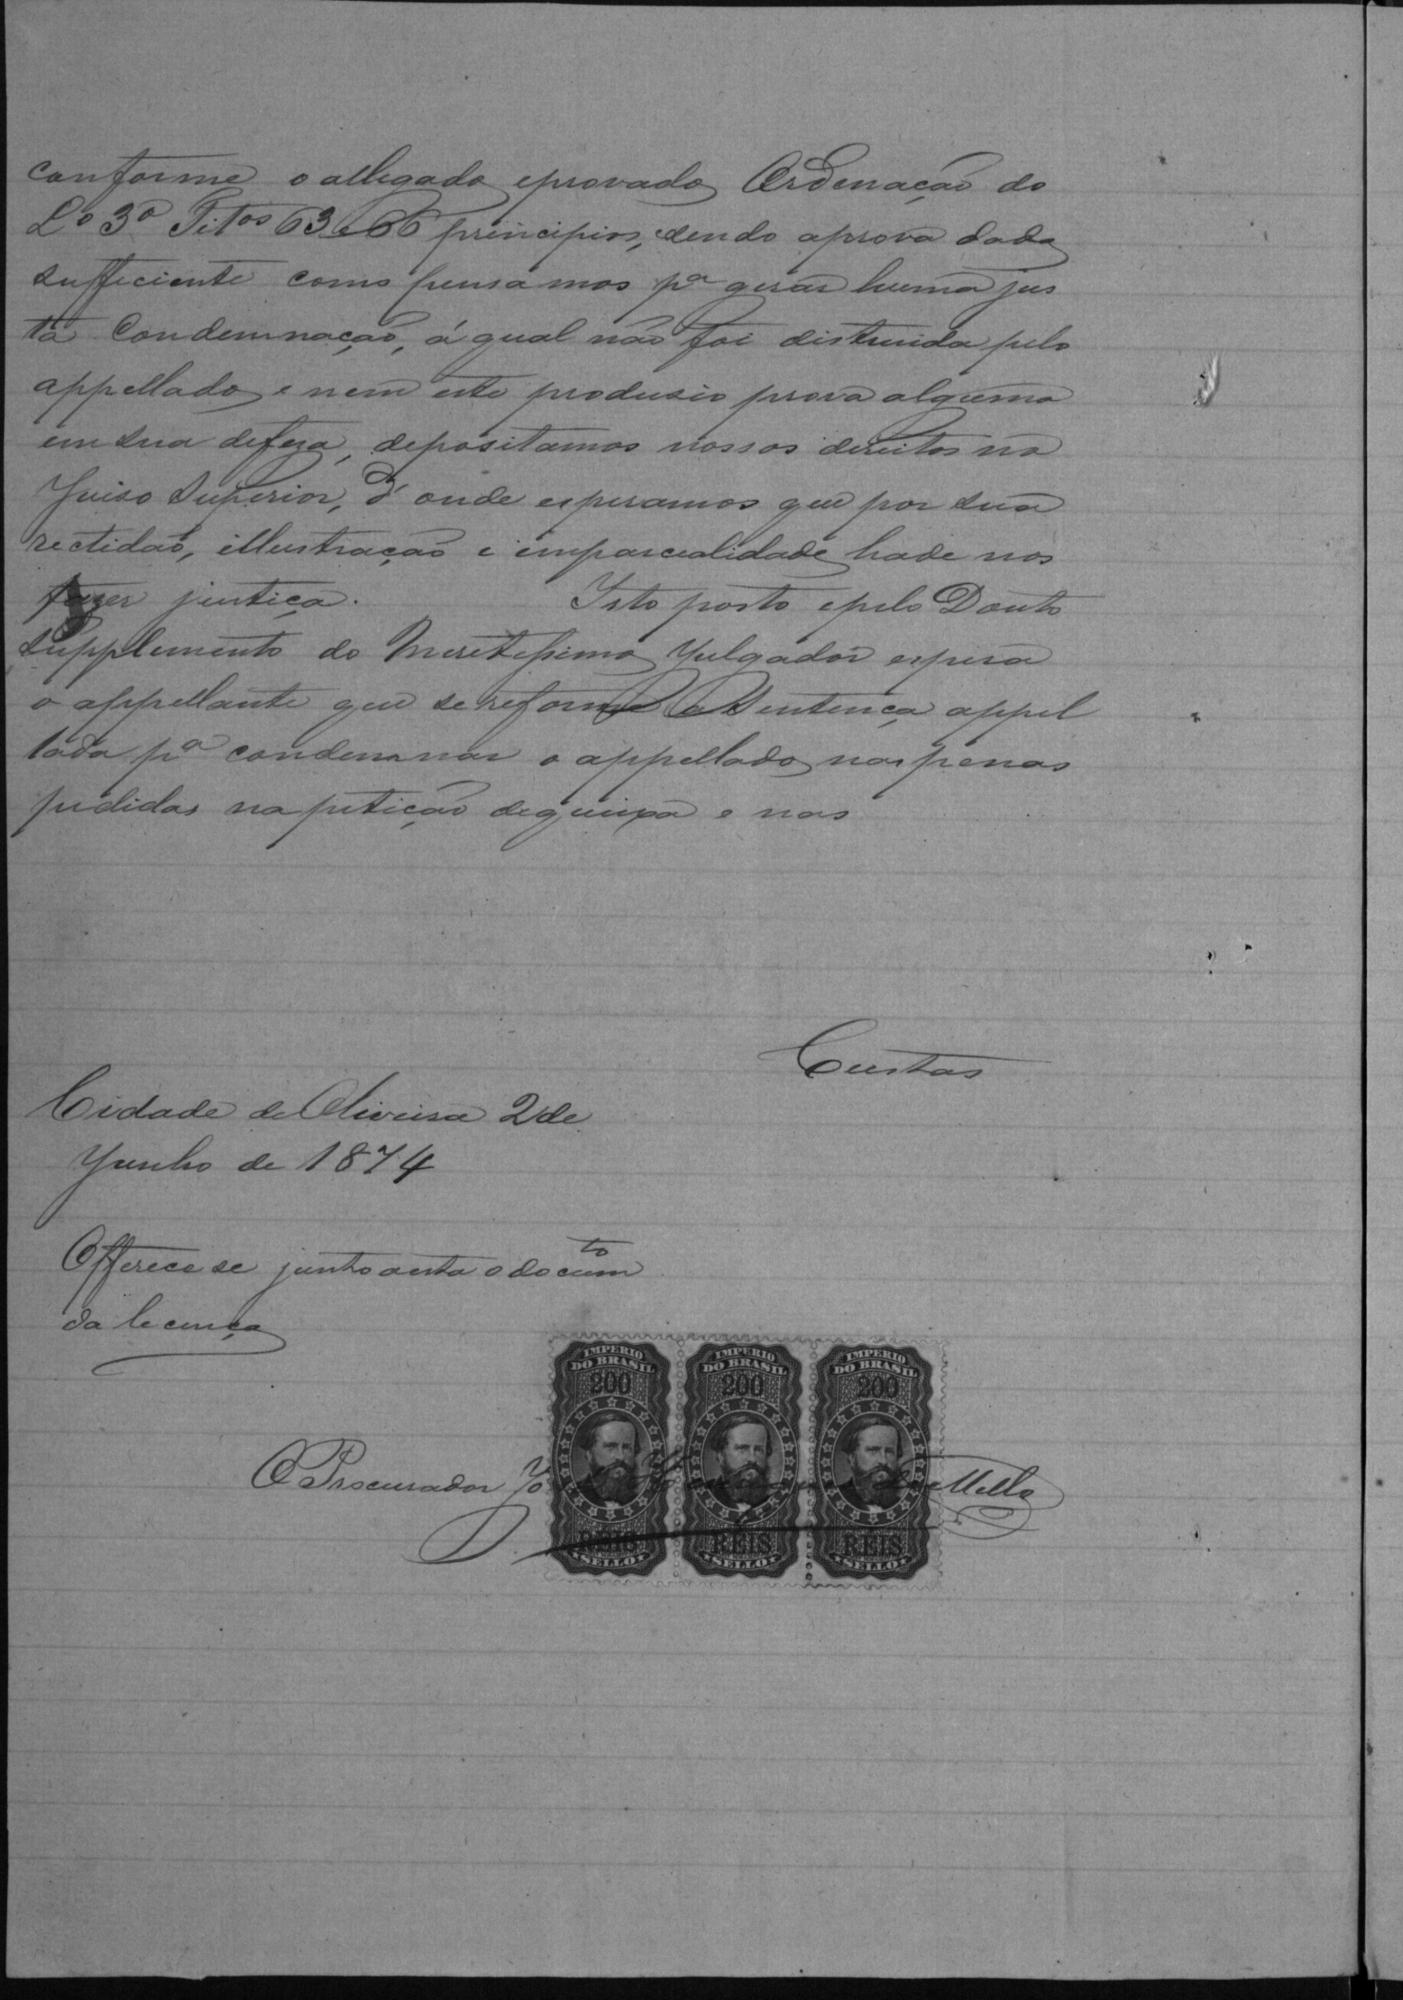 conforme o allegado eprovado Ordenação do
Lº 3º Titos 63 e 66 principios, sendo aprova dada
sufficiente como pensamos pª gerar huma jus
ta Condemnação, á qual não foi distruida pelo
appellado e nem este produsio prova alguma
em sua defeza, depositamos nossos direitos no
Juiso Superior, d'onde esperamos que por sua
rectidaõ, illustração e imparcealidade hade nos
fazer justiça. Isto posto epelo Douto
Supplemento do Meretissimo Julgador espera
o appellante que se reforme a Sentença appel
lada pª condemnar o appellado nas penas
pedidas na petição dequeixa e nas
Custas
Cidade de Oliveira 2 de
Junho de 1874
Offerece se junto aesta o docum to
da lecença
IMPERIO DO BRASIL 200 REIS SELLO
IMPERIO DO BRASIL 200 REIS SELLO
IMPERIO DO BRASIL 200 REIS SELLO
O Procurador de Mello